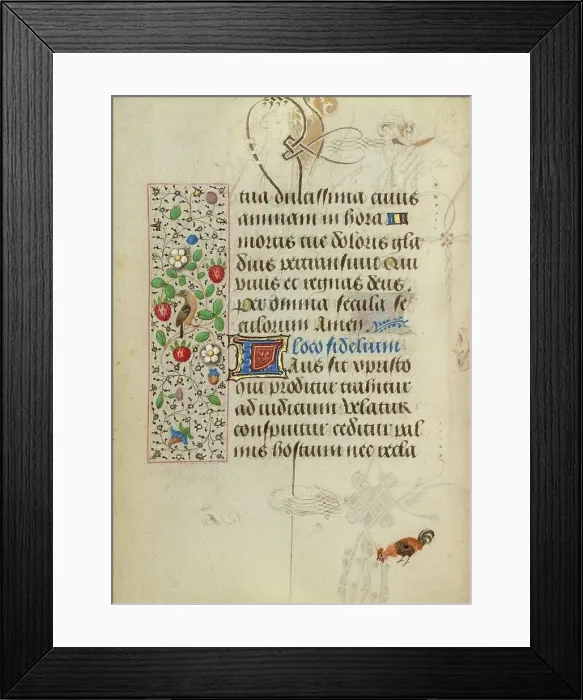 tua dulcissima cuius
animam in hora
mortis tue doloris gla
dius pertransiuit Qui
viuis et regnas deus.
Per omnia secula se
culorum Amen.
loco fidelium
Laus sit xpristo
qui proditur trahitur
ad iudicium velatur
conspuitur ceditur pal
mis hostium nec